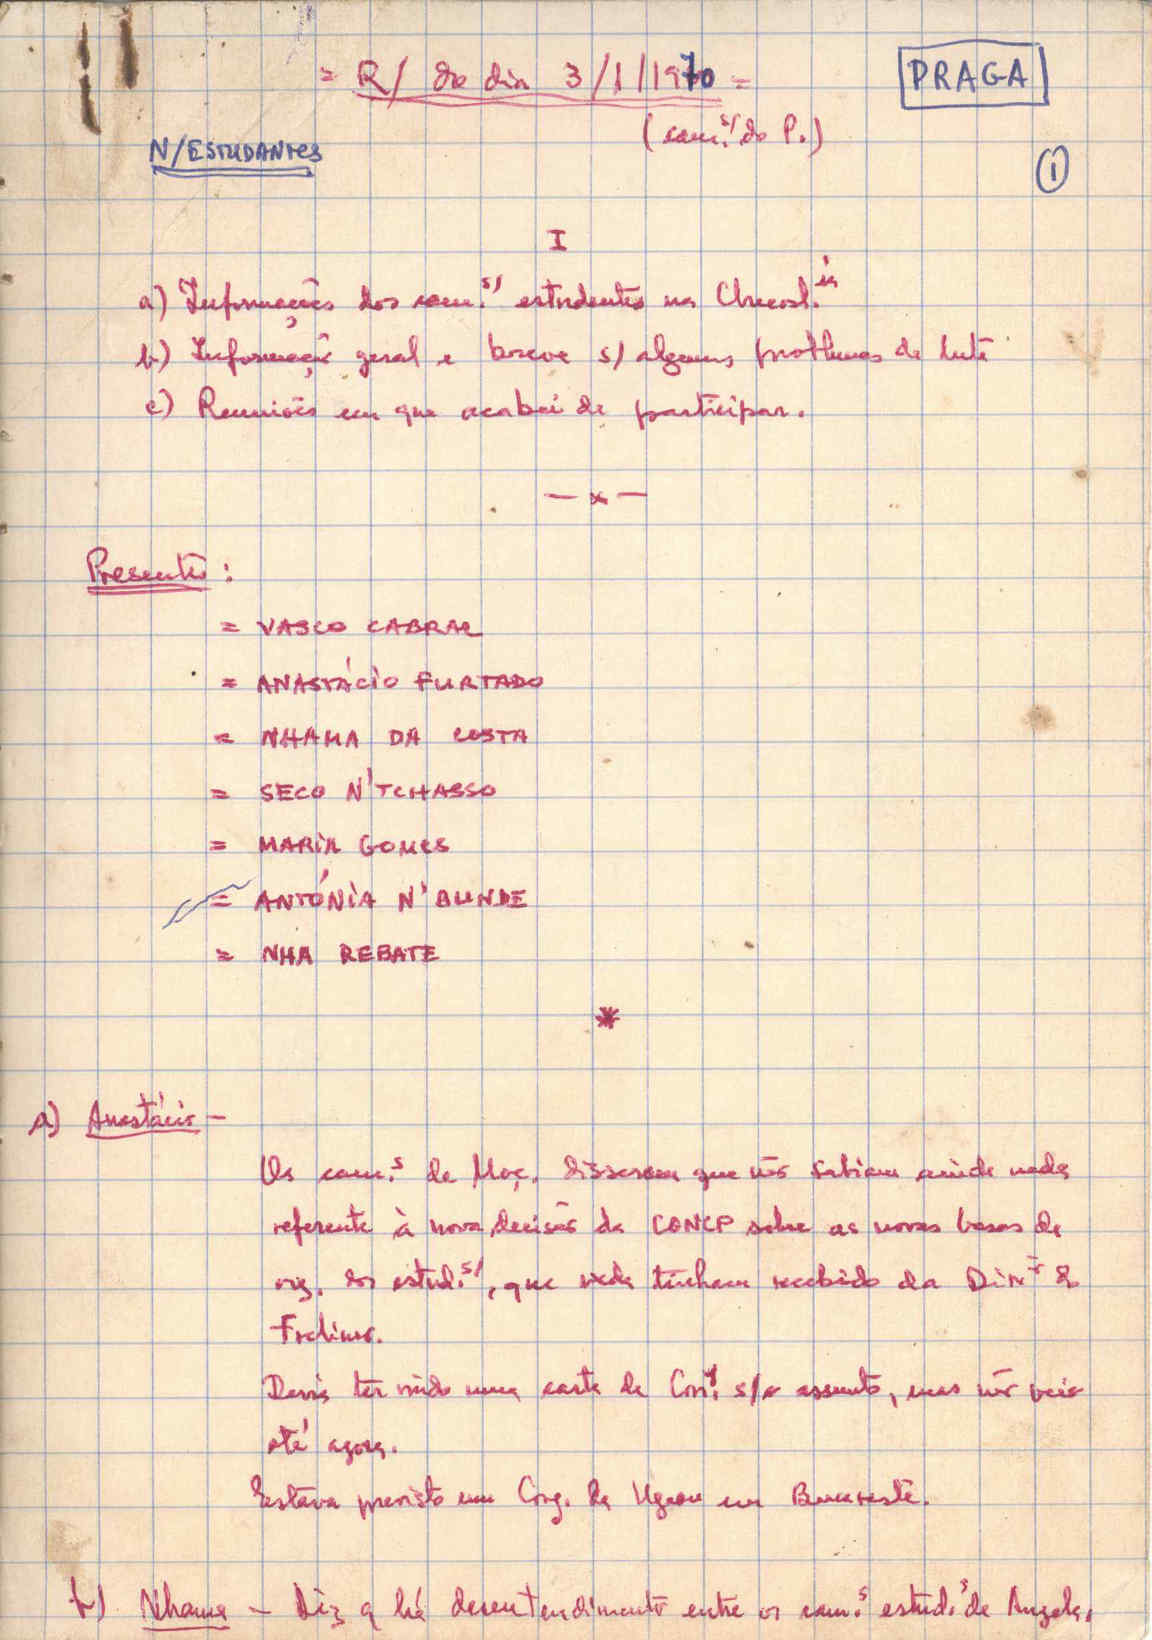 = R/ do dia 3/1/1970 =
PRAGA
(cam.s/ do P.)
N/ESTUDANTES
1
I
a) Informações dos cam.s/ estudantes na Checosl.ia
b) Informação geral e breve s/ alguns problemas da luta
c) Reuniões em que acabei de participar.
— x —
Presentes:
= VASCO CABRAL
= ANASTÁCIO FURTADO
= NHAMA DA COSTA
= SECO N'TCHASSO
= MARIA GOMES
= ANTÓNIA N'BUNDE
= NHA REBATE
*
a) Anastácio —
Os cam.s de Moç. disseram que não sabiam ainda nada
referente à nova decisão da CONCP sobre as novas bases de
org. dos estud.s/, que nada tinham recebido da Dir. da
Frelimo.
Devia ter vindo uma carta de s/o assunto, mas não veio
até agora.
Estava previsto um Cong. da Ugean em Bucareste.
b) Nhama — Diz q há desentendimento entre os cam.s estud.s de Angola,